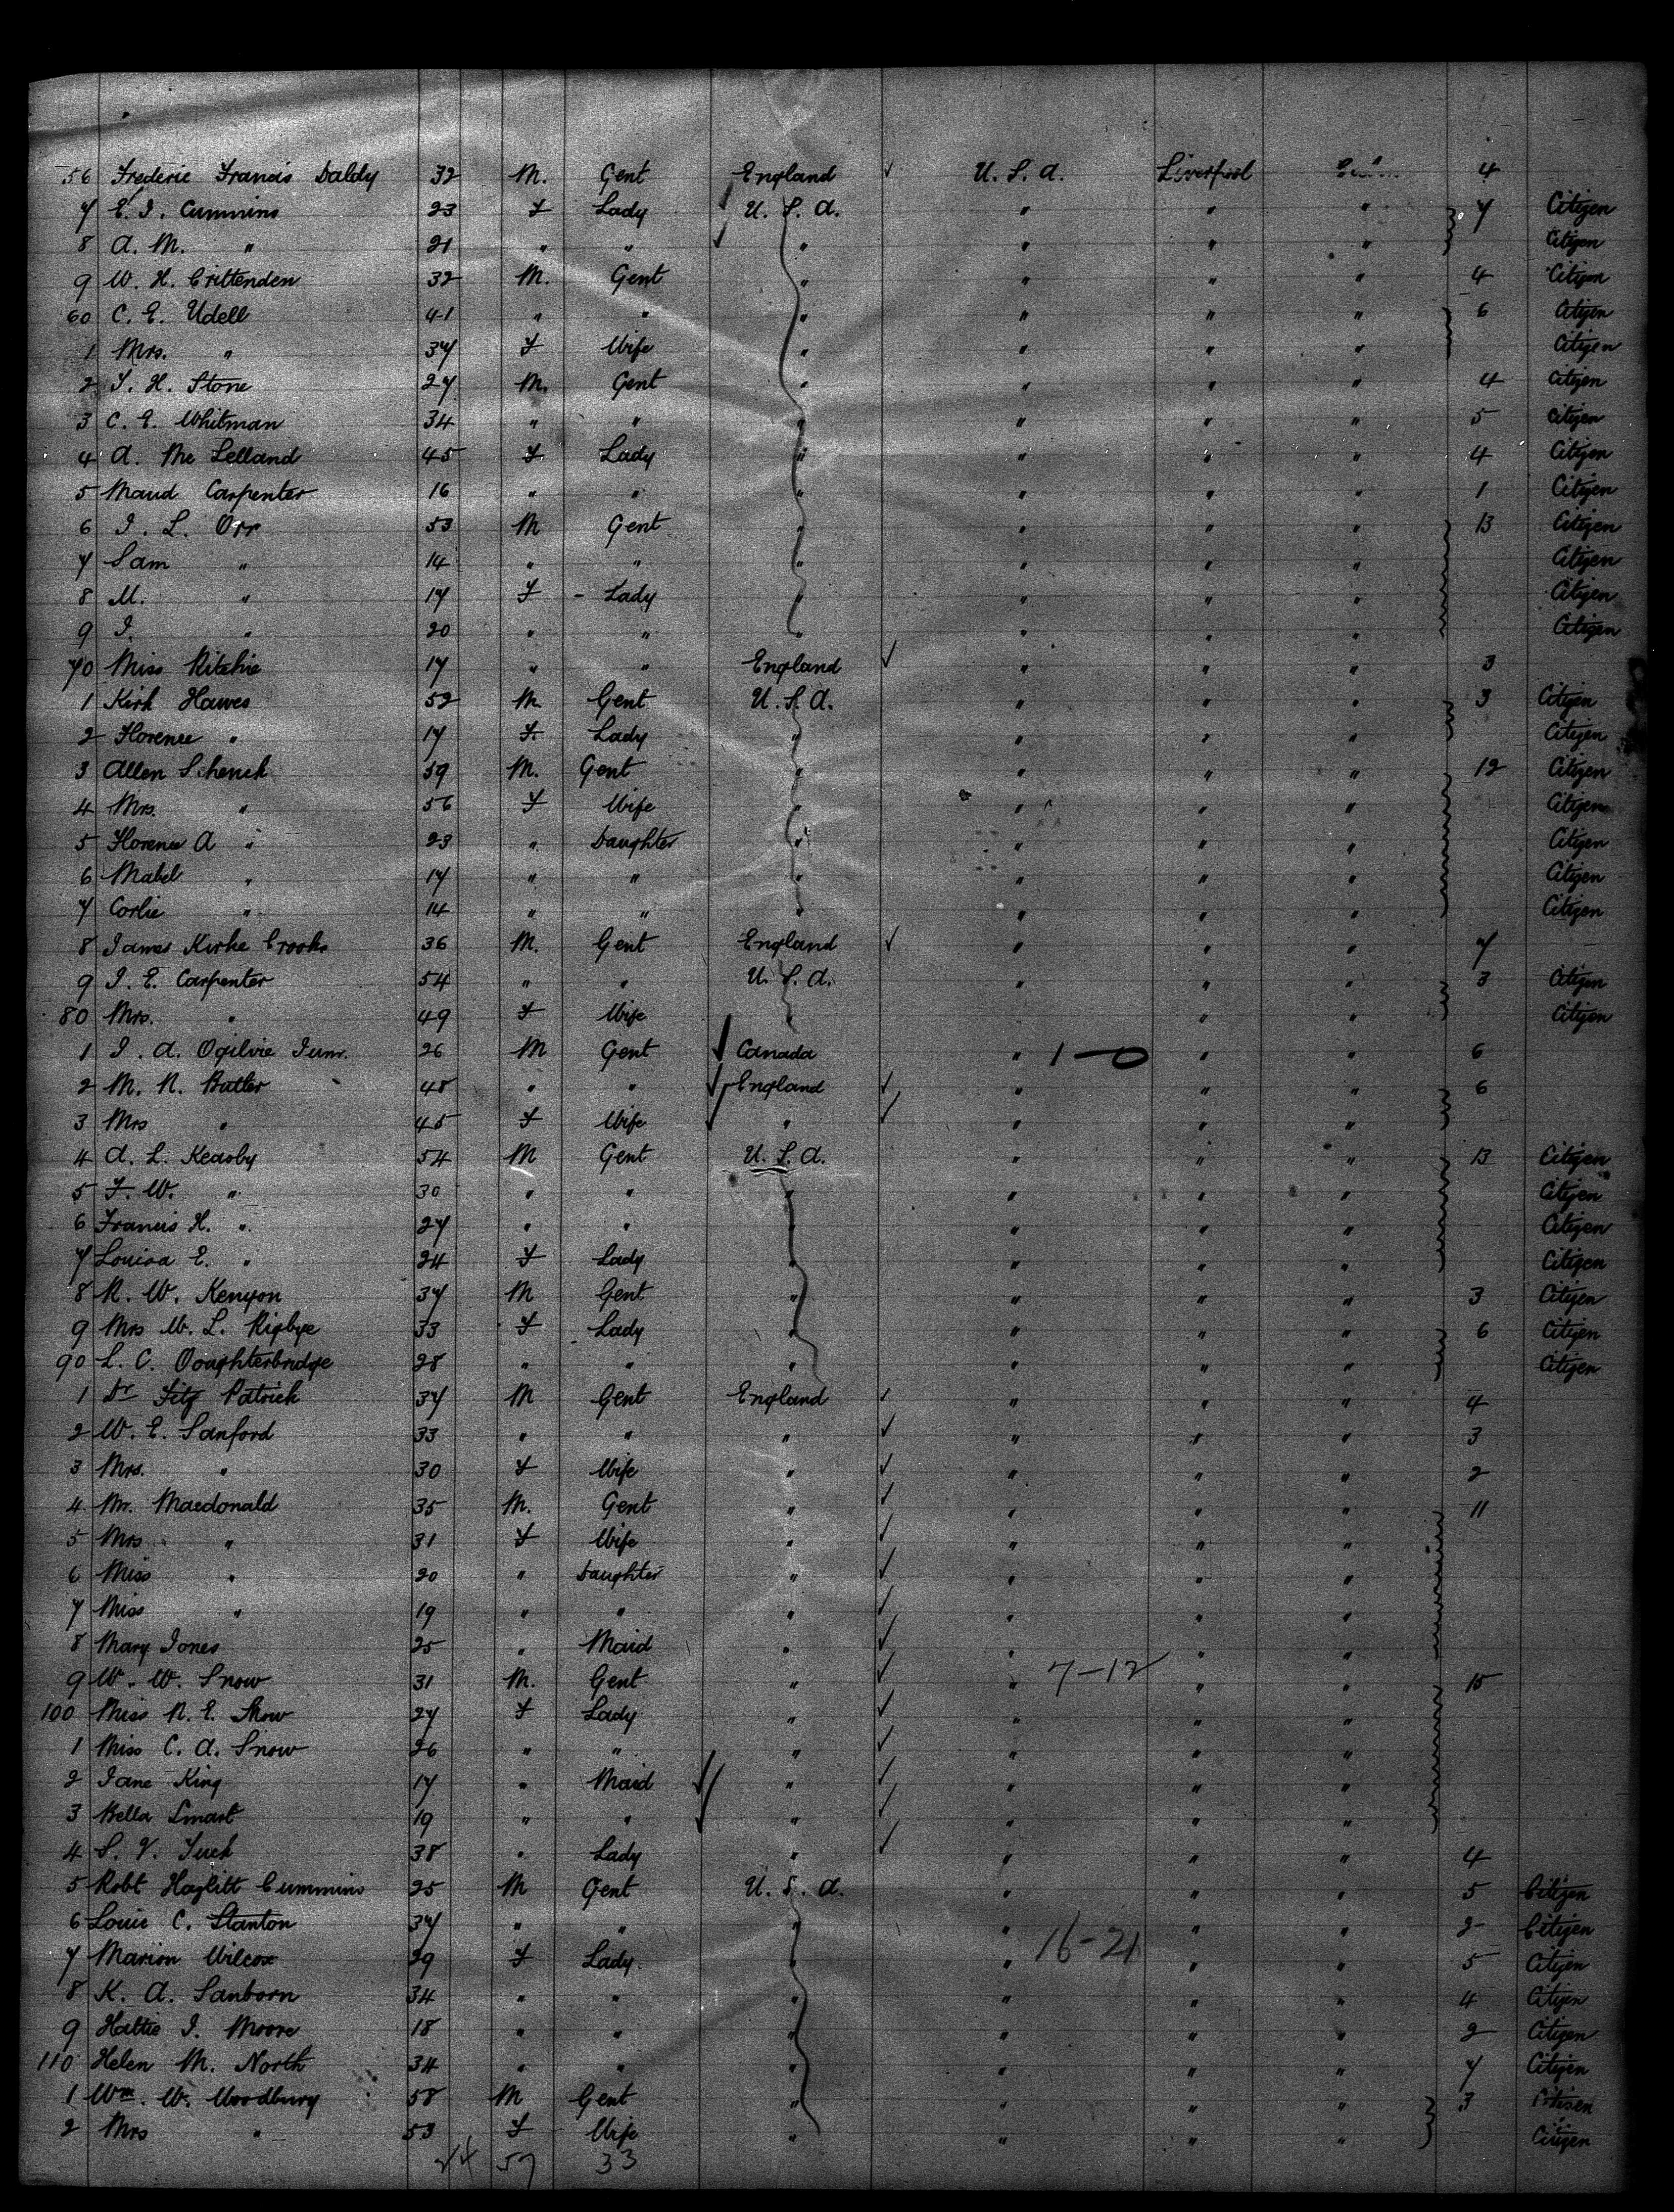 56 Frederic Francis Daldy 32 M. Gent England ✓ U. S. A. Liverpool 4
7 E. J. Cummins 23 F Lady U. S. A. " " " 7 Citizen
8 A. M. " 21 " " " " " " Citizen
9 W. H. Crittenden 32 M. Gent " " " " 4 Citizen
60 C. E. Udell 41 " " " " " " 6 Citizen
1 Mrs. " 37 F Wife " " " " Citizen
2 T. H. Stone 27 M. Gent " " " " 4 Citizen
3 C. E. Whitman 34 " " " " " " 5 Citizen
4 A. Mc Lelland 45 F Lady " " " " 4 Citizen
5 Maud Carpenter 16 " " " " " " 1 Citizen
6 J. L. Orr 53 M Gent " " " " 13 Citizen
7 Sam " 14 " " " " " " Citizen
8 M. " 17 F - Lady " " " " Citizen
9 J. " 20 " " " " " " Citizen
70 Miss Ritchie 17 " " England ✓ " " " 3
1 Kirk Hawes 52 M. Gent U. S. A. " " " 3 Citizen
2 Florence " 17 F. Lady " " " " Citizen
3 Allen Schenck 59 M. Gent " " " " 12 Citizen
4 Mrs. " 56 F Wife " " " " Citizen
5 Florence A " 23 " Daughter " " " " Citizen
6 Mabel " 17 " " " " " " Citizen
7 Corlie " 14 " " " " " " Citizen
8 James Kirke Crooks 36 M. Gent England ✓ " " " 7
9 J. E. Carpenter 54 " " U. S. A. " " " 3 Citizen
80 Mrs. " 49 F Wife " " Citizen
1 J. A. Ogilvie Junr. 26 M Gent ✓ Canada " 1-0 " " 6
2 M. N. Butler 48 " " ✓ England ✓ " " " 6
3 Mrs " 45 F Wife " ✓ " " "
4 A. L. Keasby 54 M Gent U. S. A. " " " 13 Citizen
5 F. W. " 30 " " " " " " Citizen
6 Francis H. " 27 " " " " " " Citizen
7 Louisa E. " 24 F Lady " " " " Citizen
8 R. W. Kenyon 37 M Gent " " " " 3 Citizen
9 Mrs W. L. Rigbye 33 F Lady " " " " 6 Citizen
90 L. C. Ooughterbridge 28 " " " " " " Citizen
1 Dr Fitz Patrick 37 M Gent England ✓ " " " 4
2 W. E. Sanford 33 " " " ✓ " " " 3
3 Mrs. " 30 F Wife " ✓ " " " 2
4 Mr. Macdonald 35 M. Gent " ✓ " " " 11
5 Mrs " 31 F Wife " ✓ " " "
6 Miss " 20 " Daughter " ✓ " " "
7 Miss " 19 " " " ✓ " " "
8 Mary Jones 25 " Maid " ✓ " " "
9 W. W. Snow 31 M. Gent " ✓ " 7-12 " " 15
100 Miss N. E. Snow 27 F Lady " ✓ " " "
1 Miss C. A. Snow 26 " " " ✓ " " "
2 Jane King 17 " Maid ✓ " ✓ " " "
3 Bella Smart 19 " " ✓ " ✓ " " "
4 S. V. Tuck 38 " Lady " ✓ " " " 4
5 Robt Hazlitt Cummins 25 M Gent U. S. A. " " " 5 Citizen
6 Louie C. Stanton 37 " " " " 16-21 " " 2 Citizen
7 Marion Wilcox 29 F Lady " " " " 5 Citizen
8 K. A. Sanborn 34 " " " " " " 4 Citizen
9 Hattie J. Moore 18 " " " " " " 2 Citizen
110 Helen M. North 34 " " " " " " 7 Citizen
1 Wm. W. Woodbury 58 M Gent " " " " 3 Citizen
2 Mrs " 53 F Wife " " " " Citizen
24 57 33